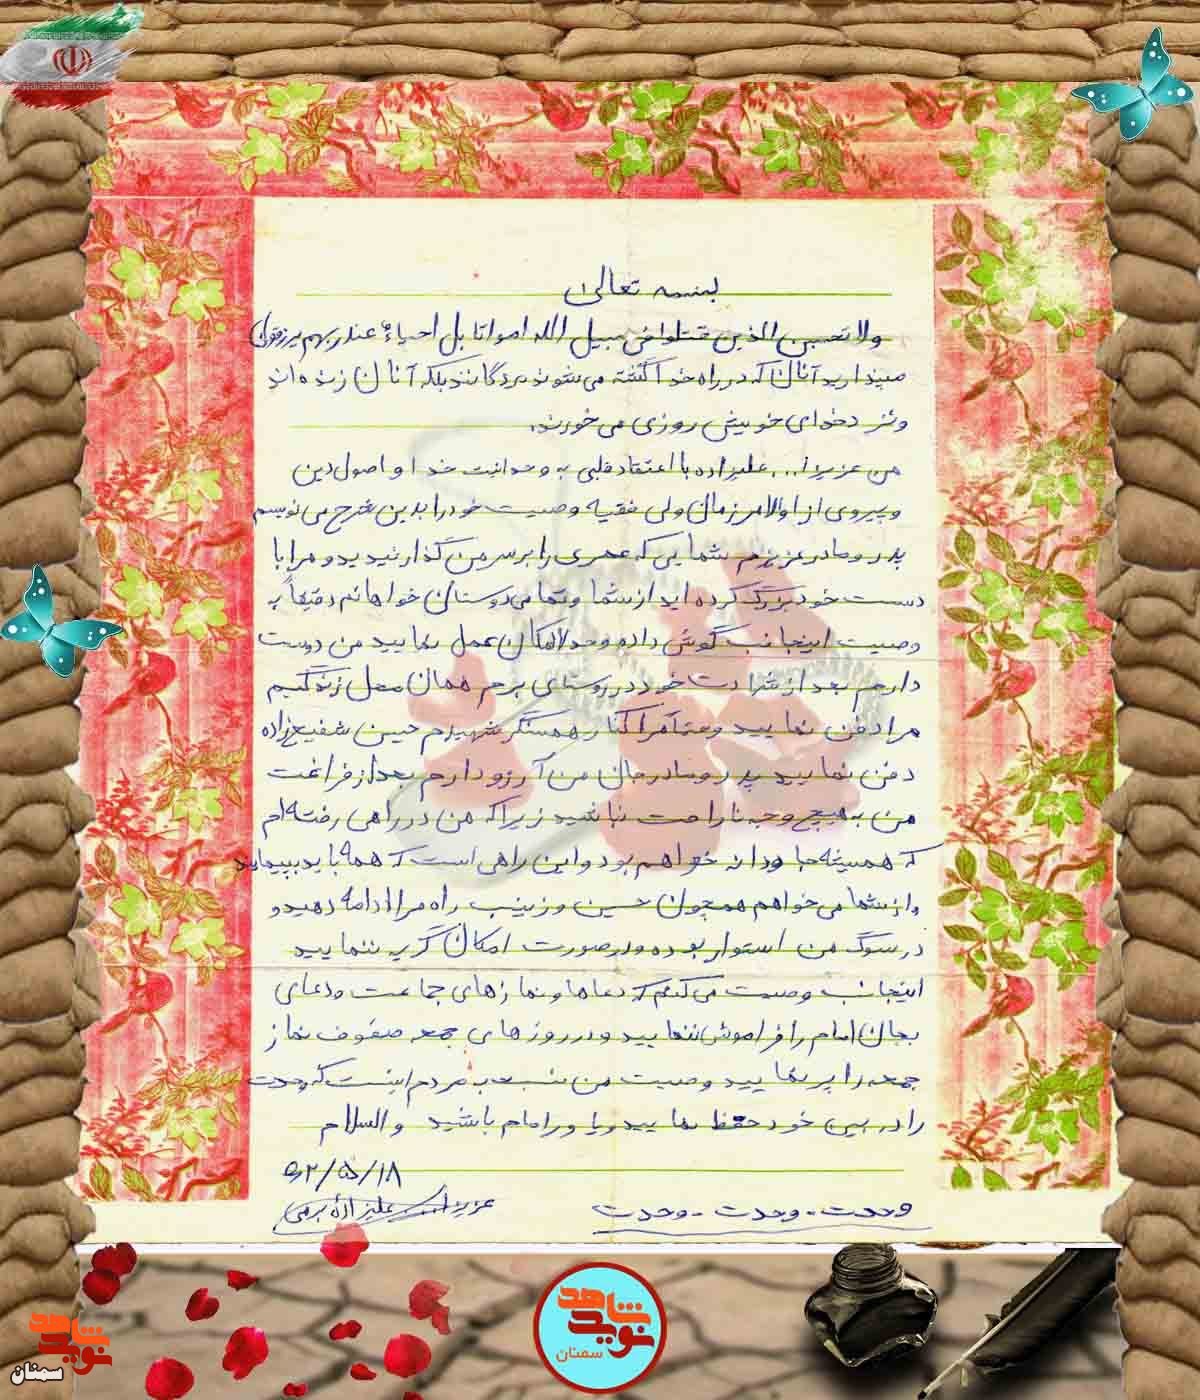 بسمه تعالی
ولا تحسبن الذین قتلوا فی سبیل الله امواتا بل احیاء عند ربهم یرزقون
مپندارید آنان که در راه خدا کشته می شوند مردگانند بلکه آنان زنده اند
و نزد خدای خویش روزی می خورند.
من عزیزا... علیزاده با اعتقاد قلبی به وحدانیت خدا و اصول دین
و پیروی از اولالامر زمان ولی فقیه وصیت خود را بدین شرح می نویسم
پدر و مادر عزیزم شمایی که عمری را بر سر من گذارندید و مرا با
دست خود بزرگ کرده اید از شما و تمامی دوستان خواهانم دقیقاً به
وصیت اینجانب گوش داده و حدالامکان عمل نمایید من دوست
دارم بعد از شهادت خود در روستای برم همان محل زندگیم
مرا دفن نمایید و حتما مرا کنار همسنگر شهیدم حسین شفیع زاده
دفن نمایید پدر و مادر جان من آرزو دارم بعد از فراغت
من به هیچ وجه ناراحت نباشید زیرا که من در راهی رفته ام
که همیشه جاودانه خواهم بود و این راهی است که همه باید بپیمایند
و از شما می خواهم همچون حسین و زینب راه مرا ادامه دهید و
در سوگ من استوار بوده و در صورت امکان گریه ننمایید
اینجانب وصیت می کنم که دعاها و نمازهای جماعت و دعای
بجان امام را فراموش ننمایید و در روزهای جمعه صفوف نماز
جمعه را پر نمایید وصیت من نسبت به مردم اینست که وحدت
را در بین خود حفظ نمایید و یاور امام باشید والسلام
۶۲/۵/۱۸
وحدت - وحدت - وحدت
عزیزا... علیزاده برمی
شاهد
نوید
سمنان
شاهد
نوید
سمنان